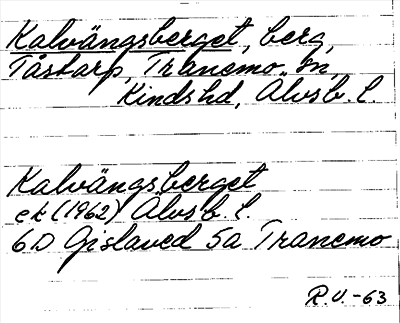 Kalvängsberget, berg,
Tåstarp, Tranemo sn
Kinds hd, Älvsb. l.
Kalvängsberget
ek (1962) Älvsb. l.
6D Gislaved 5a Tranemo
R.V.-63